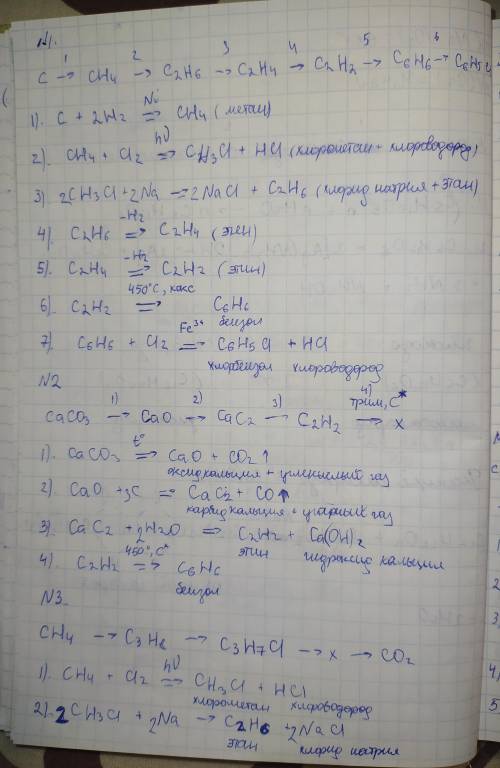 N1.
1 2 3 4 5 6
C → CH4 → C2H6 → C2H4 → C2H2 → C6H6 → C6H5Cl
1). C + 2H2 Ni ⇒ CH4 (метан)
2). CH4 + Cl2 hν ⇒ CH3Cl + HCl (хлорометан + хлороводород)
3) 2CH3Cl + 2Na ⇒ 2NaCl + C2H6 (хлорид натрия + этан)
4). C2H6 -H2 ⇒ C2H4 (этен)
5). C2H4 -H2 ⇒ C2H2 (этин)
6). C2H2 450°C, кокс ⇒ C6H6
бензол
7). C6H6 + Cl2 Fe3+ ⇒ C6H5Cl + HCl
хлорбензол хлороводород
N2
CaCO3 1) → CaO 2) → CaC2 3) → C2H2 4) трим, C* → x
1). CaCO3 t° ⇒ CaO + CO2↑
оксид кальция + углекислый газ
2). CaO + 3C ⇒ CaC2 + CO↑
карбид кальция + угарный газ
3). CaC2 + 2H2O ⇒ C2H2 + Ca(OH)2
этин гидроксид кальция
4). C2H2 450°, C* ⇒ C6H6
бензол
N3.
CH4 → C3H8 → C3H7Cl → x → CO2
1). CH4 + Cl2 hν ⇒ CH3Cl + HCl
хлорометан хлороводород
2). 2CH3Cl + 2Na → C2H6 + 2NaCl
этан хлорид натрия